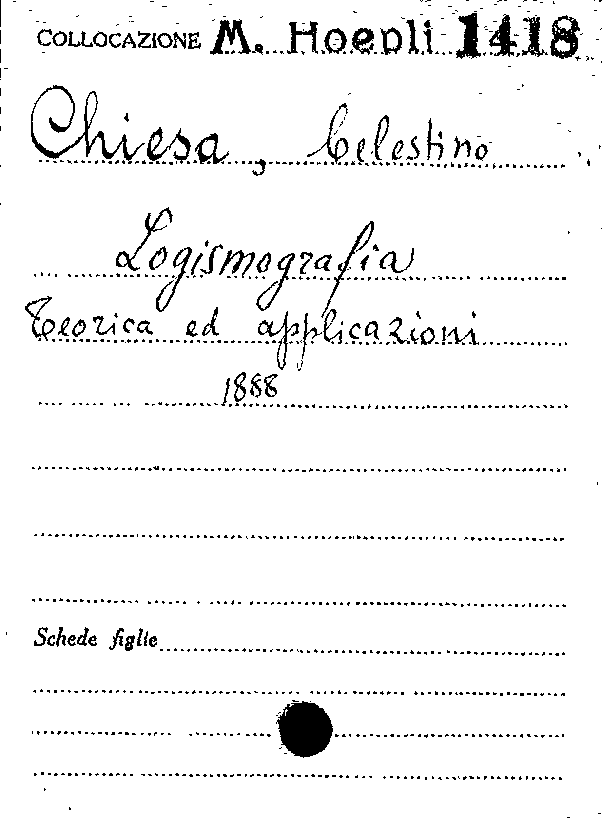 COLLOCAZIONE M. Hoepli 1418
Chiesa, Celestino
Logismografia
Teorica ed applicazioni
1888
Schede figlie